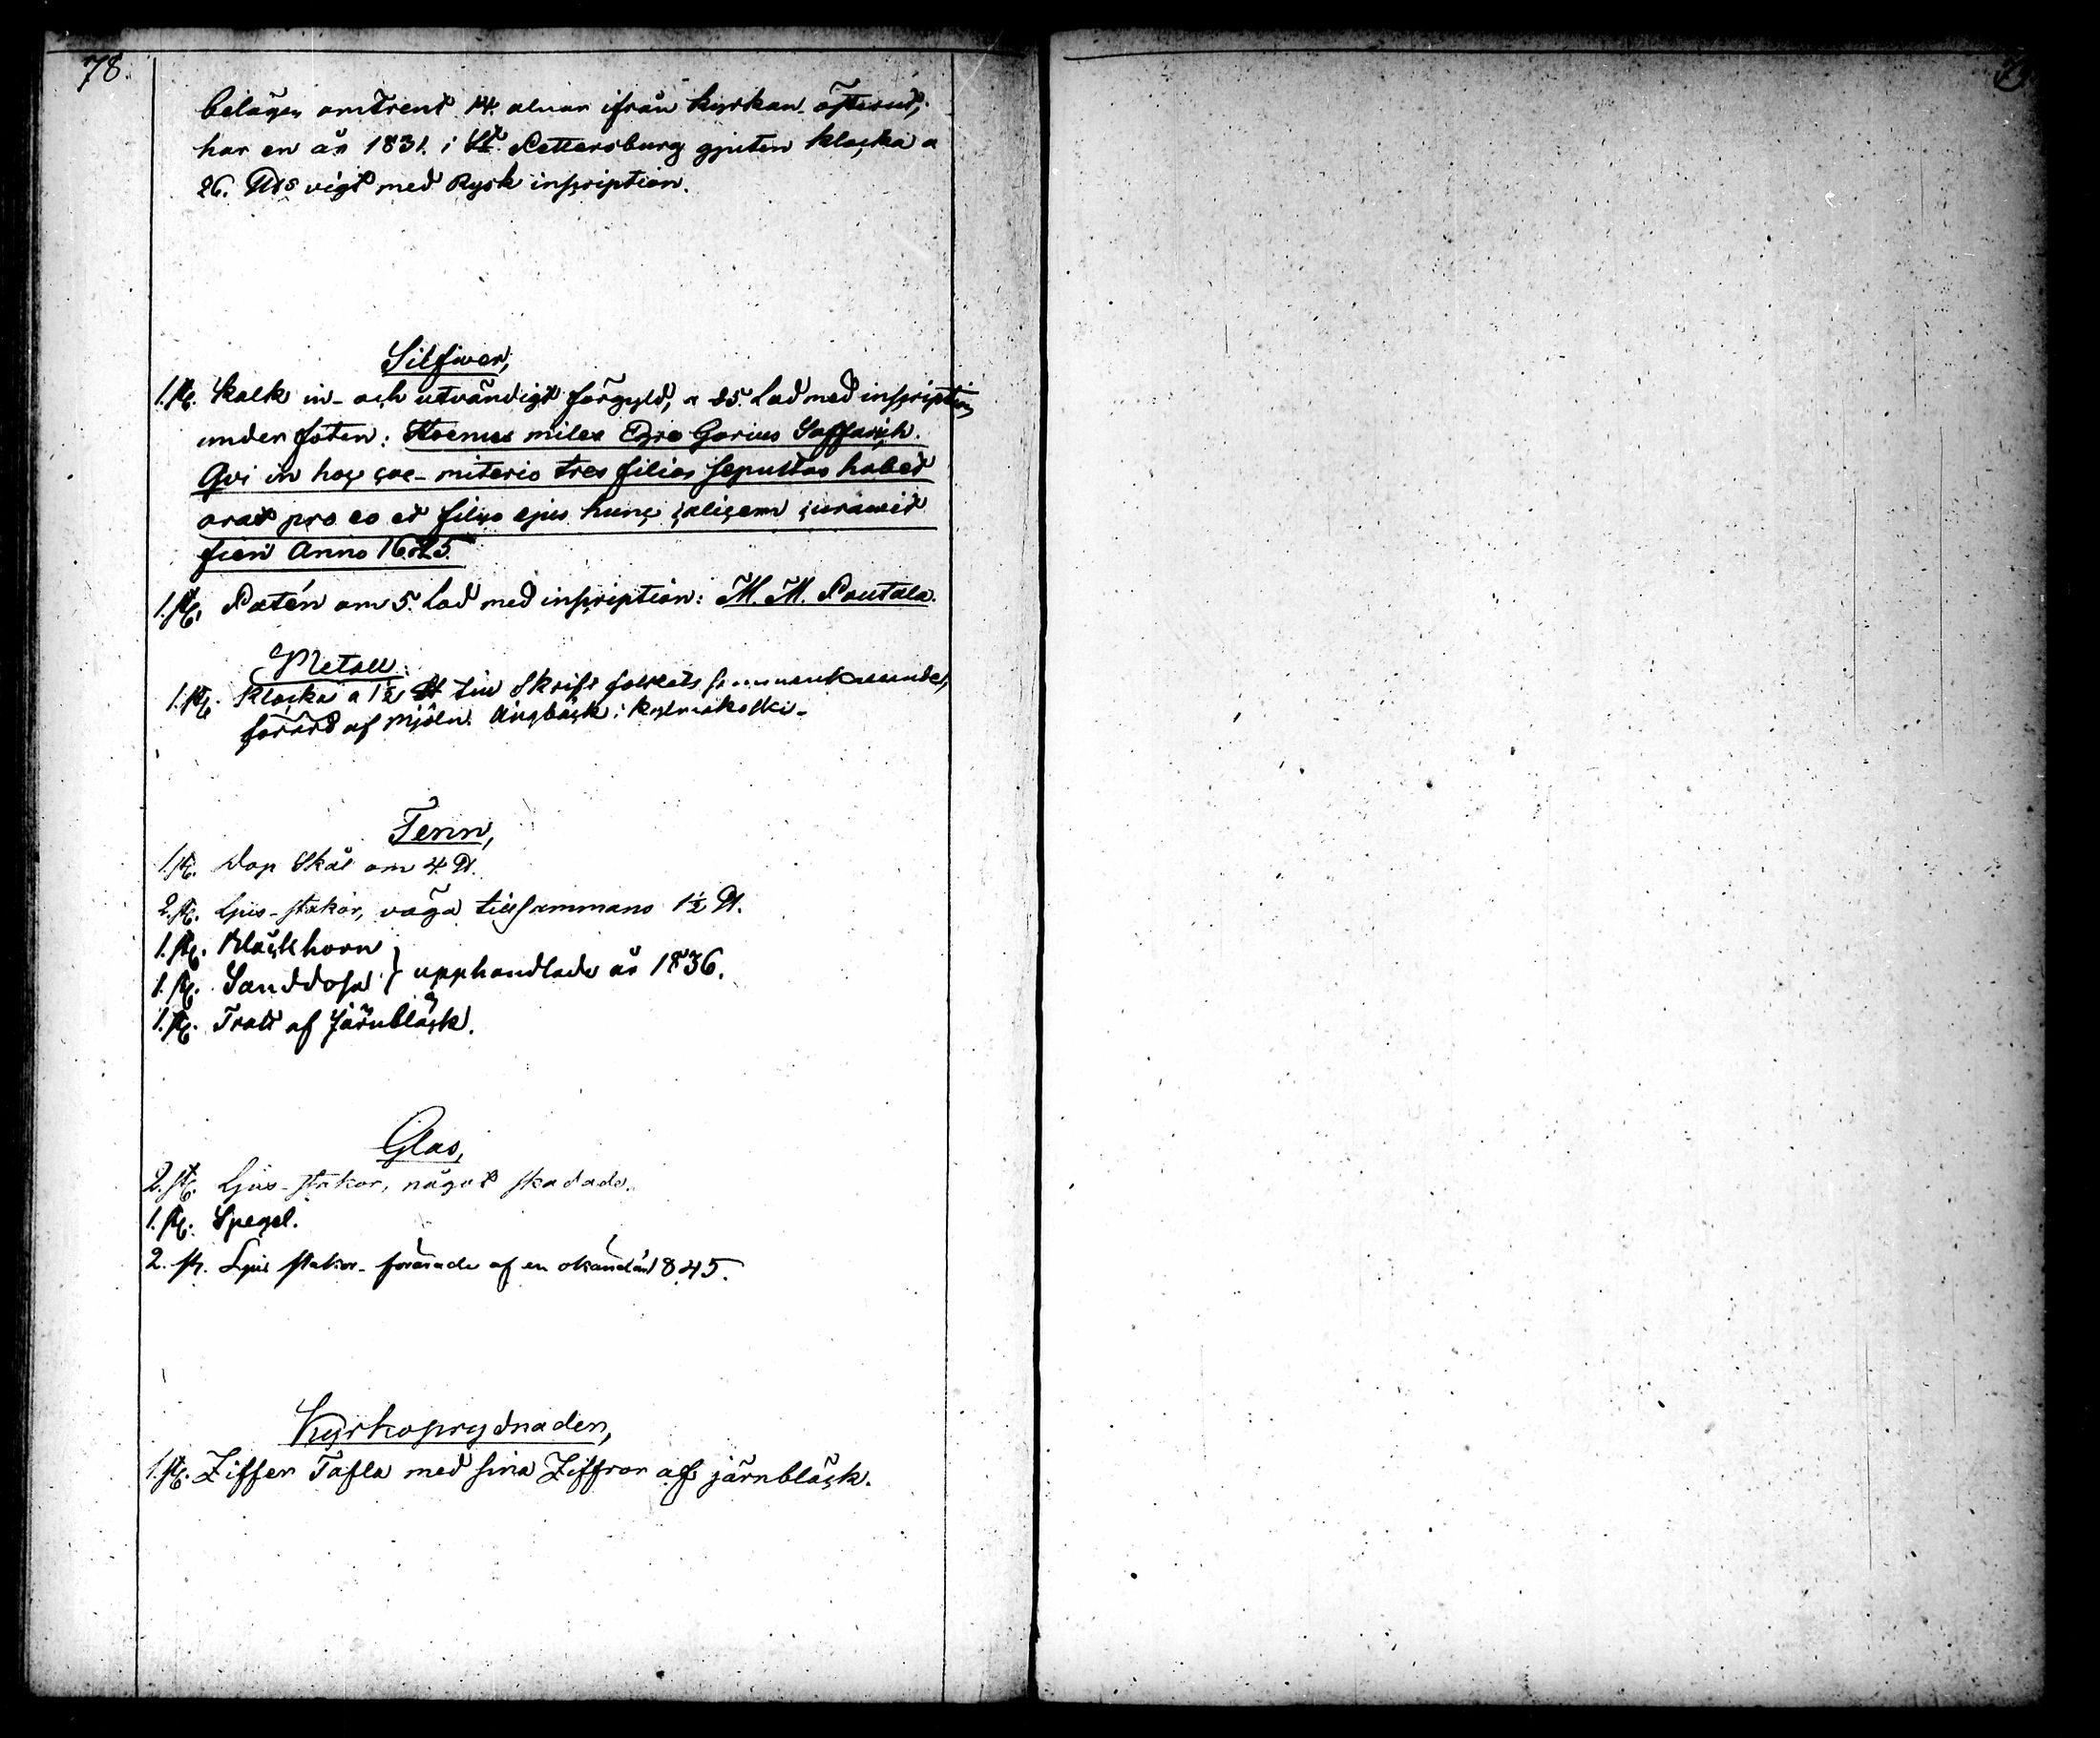 78.
belägen omtrent 14. alnar ifrån kyrkan österut,
har en år 1831. i St. Pettersburg gjuten klocka a
26. ℔s vigt med Rysk inscription.
Silfwer,
1.st. Kalk in- och utvändigt förgyld, a 25. Lod med inscription
under foten: miles Gorius
Qvi in hoc coe-miterio tres filios sepultos habet
orat pro eo et filio ejus hunc calicem curawit
fieri Anno 1625.
1.st. Patén om 5. Lod med inscription: M. M. Pautala.
Metall:
1.st. Klocka a 1½
förärd af Mjöln. i
Tenn,
1.st. Dop Skål om 4. ℔.
2.st. Ljus-stakar, väga tillsammans 1½ ℔.
1.st. Bläckhorn
1.st. Sanddosa } upphandlade år 1836.
1.st. Tratt af Järnbläck.
Glas,
2.st. Ljus-stakar, något skadade.
1.st. Spegel.
2. st. Ljus stakar- förärade af en okänd år 1845.
Kyrkoprydnader,
1.st. Ziffer Tafla med sina Ziffror af järnbläck.